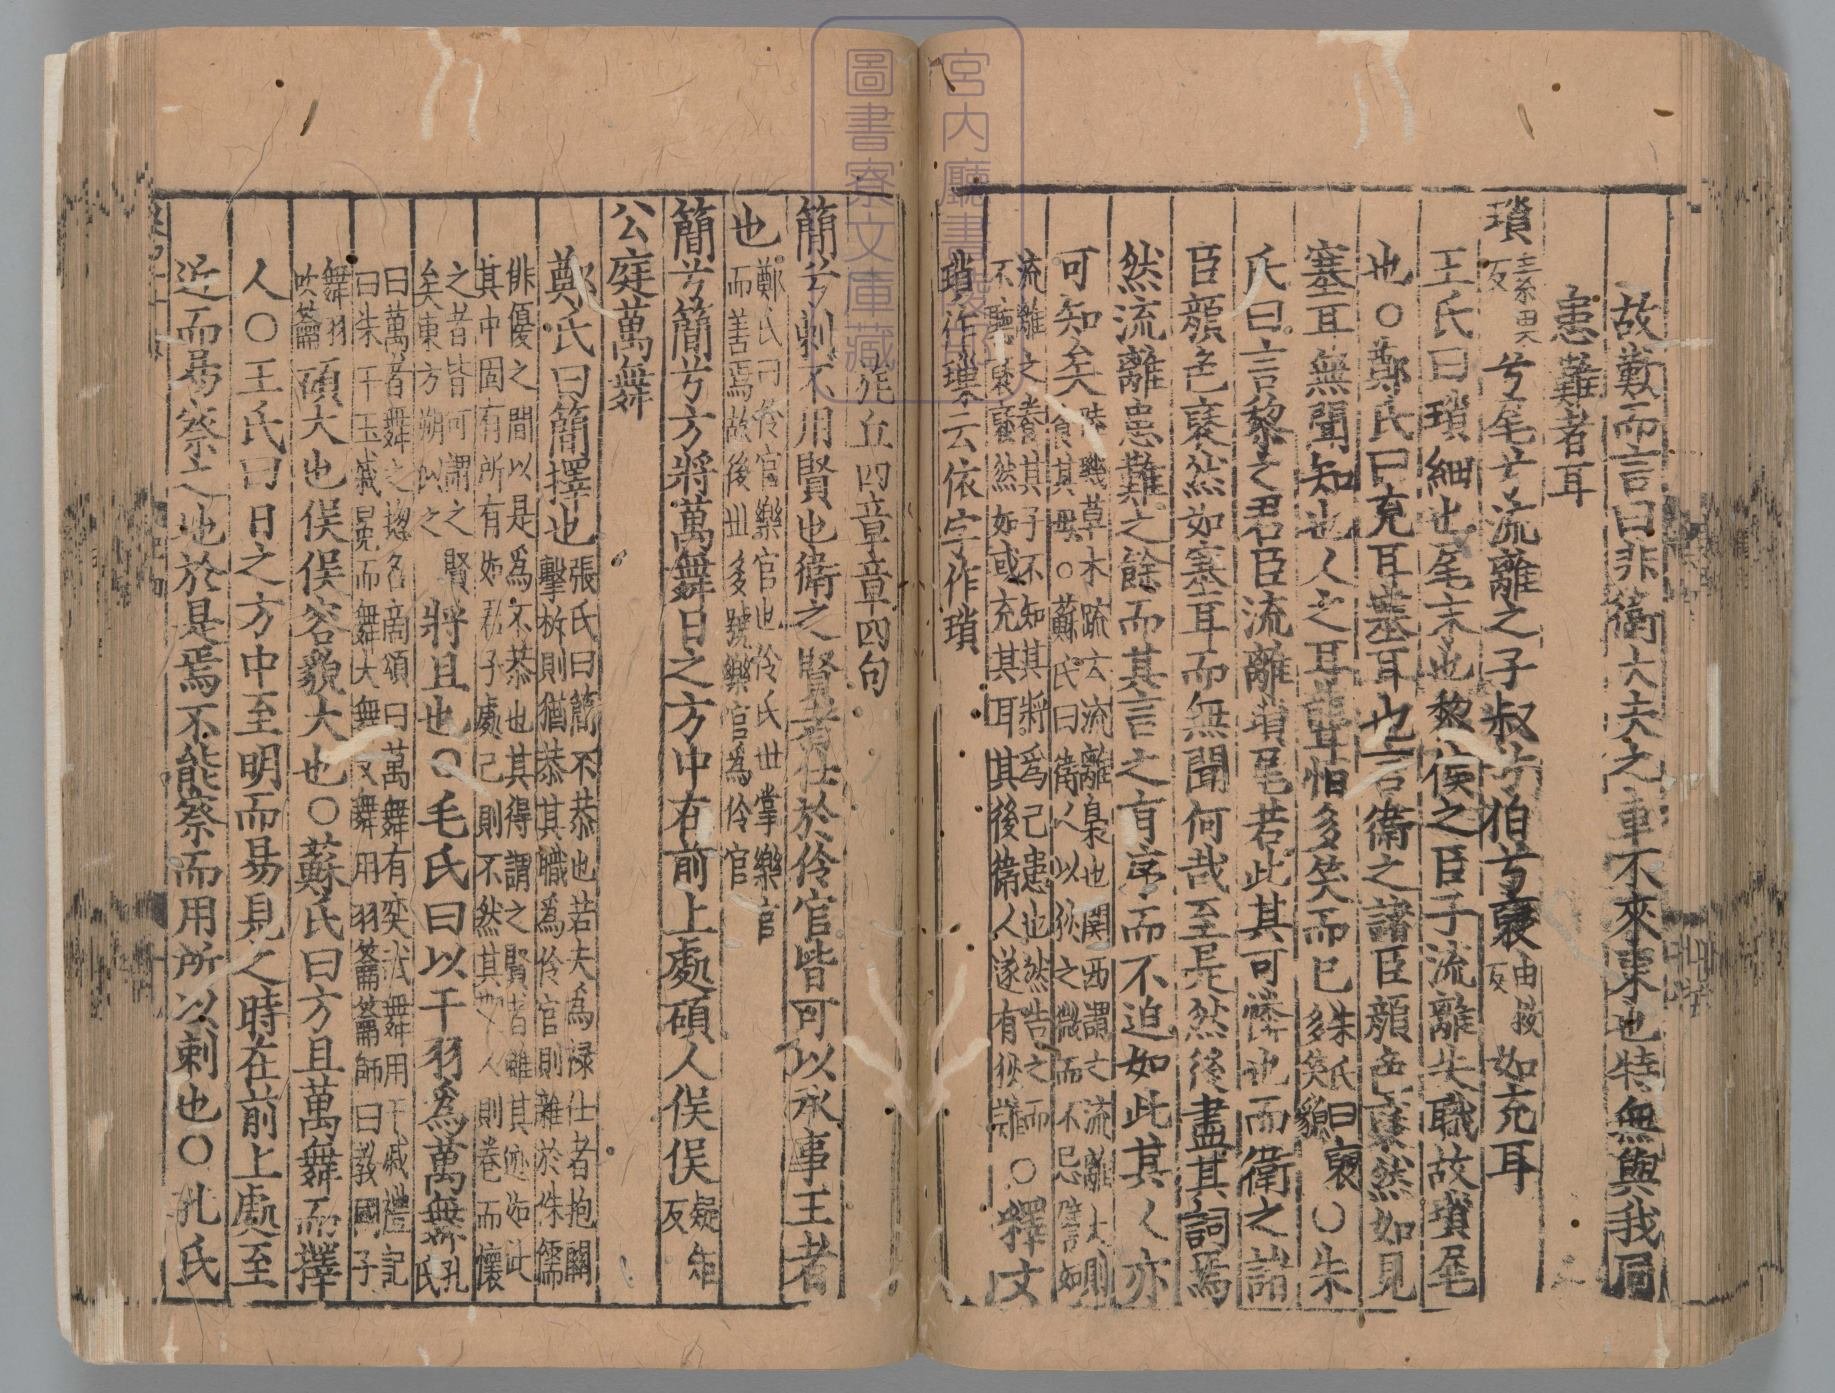 故歎而言曰非衞大夫之車不來東也特無與我同
患難者耳
瑣素果反兮尾兮流離之子叔兮伯兮褎由救反如充耳
王氏曰瑣細也尾末也黎侯之臣子流離失職故瑣尾
也○鄭氏曰充耳塞耳也言衞之諸臣顏色褎然如見
塞耳無聞知也人之耳聾恒多笑而已朱氏曰褎多笑貌○朱
氏曰言黎之君臣流離瑣尾若此其可憐也而衞之諸
臣顏色褎然如塞耳而無聞何哉至是然後盡其詞焉
然流離患難之餘而其言之有序而不迫如此其人亦
可知矣陸璣草木疏云流離梟也關西謂之流離大則食其母○蘇氏曰衞人以狄之微而不忌譬如
流離之養其子不知其將爲己患也然告之而不聽褎褎然如或充其耳其後衞人遂有狄難○釋文
瑣作璅云依字作瑣
旄丘四章章四句
簡兮刺不用賢也衞之賢者仕於伶官皆可以承事王者
也鄭氏曰伶官樂官也伶氏世掌樂官而善焉故後世多號樂官爲伶官
簡兮簡兮方將萬舞日之方中在前上處碩人俣俣疑矩反
公庭萬舞
鄭氏曰簡擇也張氏曰簡不恭也若夫爲祿仕者抱關擊柝則猶恭其職爲伶官則雜於侏儒
俳優之間以是爲不恭也其得謂之賢者雖其迹如此其中固有所有如君子處己則不然其執人則卷而懷
之者皆可謂之賢矣東方朔以之將且也○毛氏曰以干羽爲萬舞孔氏
曰萬者舞之揔名商頌曰萬舞有奕此舞用干戚禮記曰朱干玉戚冕而舞大舞又舞用羽籥籥師曰教國子
舞羽吹籥碩大也俣俣容貌大也○蘇氏曰方且萬舞而擇
人○王氏曰日之方中至明而易見之時在前上處至
近而易察之地於是焉不能察而用所以刺也○孔氏
宮内廳書陵部
圖書寮文庫藏